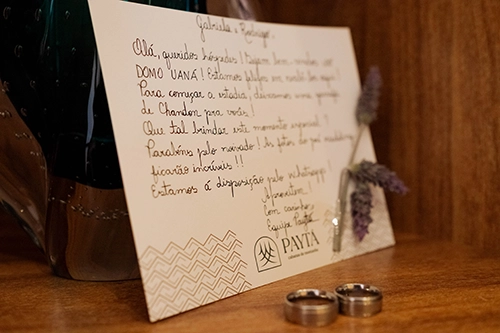 Gabriela e Rodrigo,
Olá, queridos hóspedes! Sejam bem-vindos ao
DOMO UANÁ! Estamos felizes em recebê-los aqui!
Para começar a estadia, deixamos uma garrafa
de Chandon pra vocês!
Que tal brindar este momento especial?
Parabéns pelo noivado! As fotos do pré wedding
ficarão incríveis!!
Estamos à disposição pelo whatsapp!
Aproveitem!
Com carinho,
Equipe Paytá
PAYTÁ